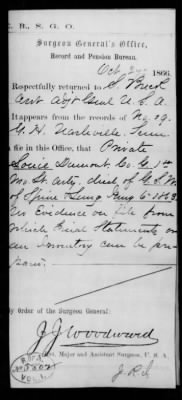 E. B., S. G. O.
Surgeon General's Office,
Record and Pension Bureau.
Oct 1866.
Respectfully returned to S. Breck
Asst Adjt Genl U.S.A.
It appears from the records of No 19
G. H. Nashville, Tenn
file in this Office, that Private
Louis Dumont, Co. G. 1st
Mo St. Arty., died of G.S.W.
of Spine Jany 6" 1863
No Evidence on file from
which Final Statements or
an inventory can be pre-
pared.
By order of the Surgeon General:
J J Woodward
Major and Assistant Surgeon, U. S. A.